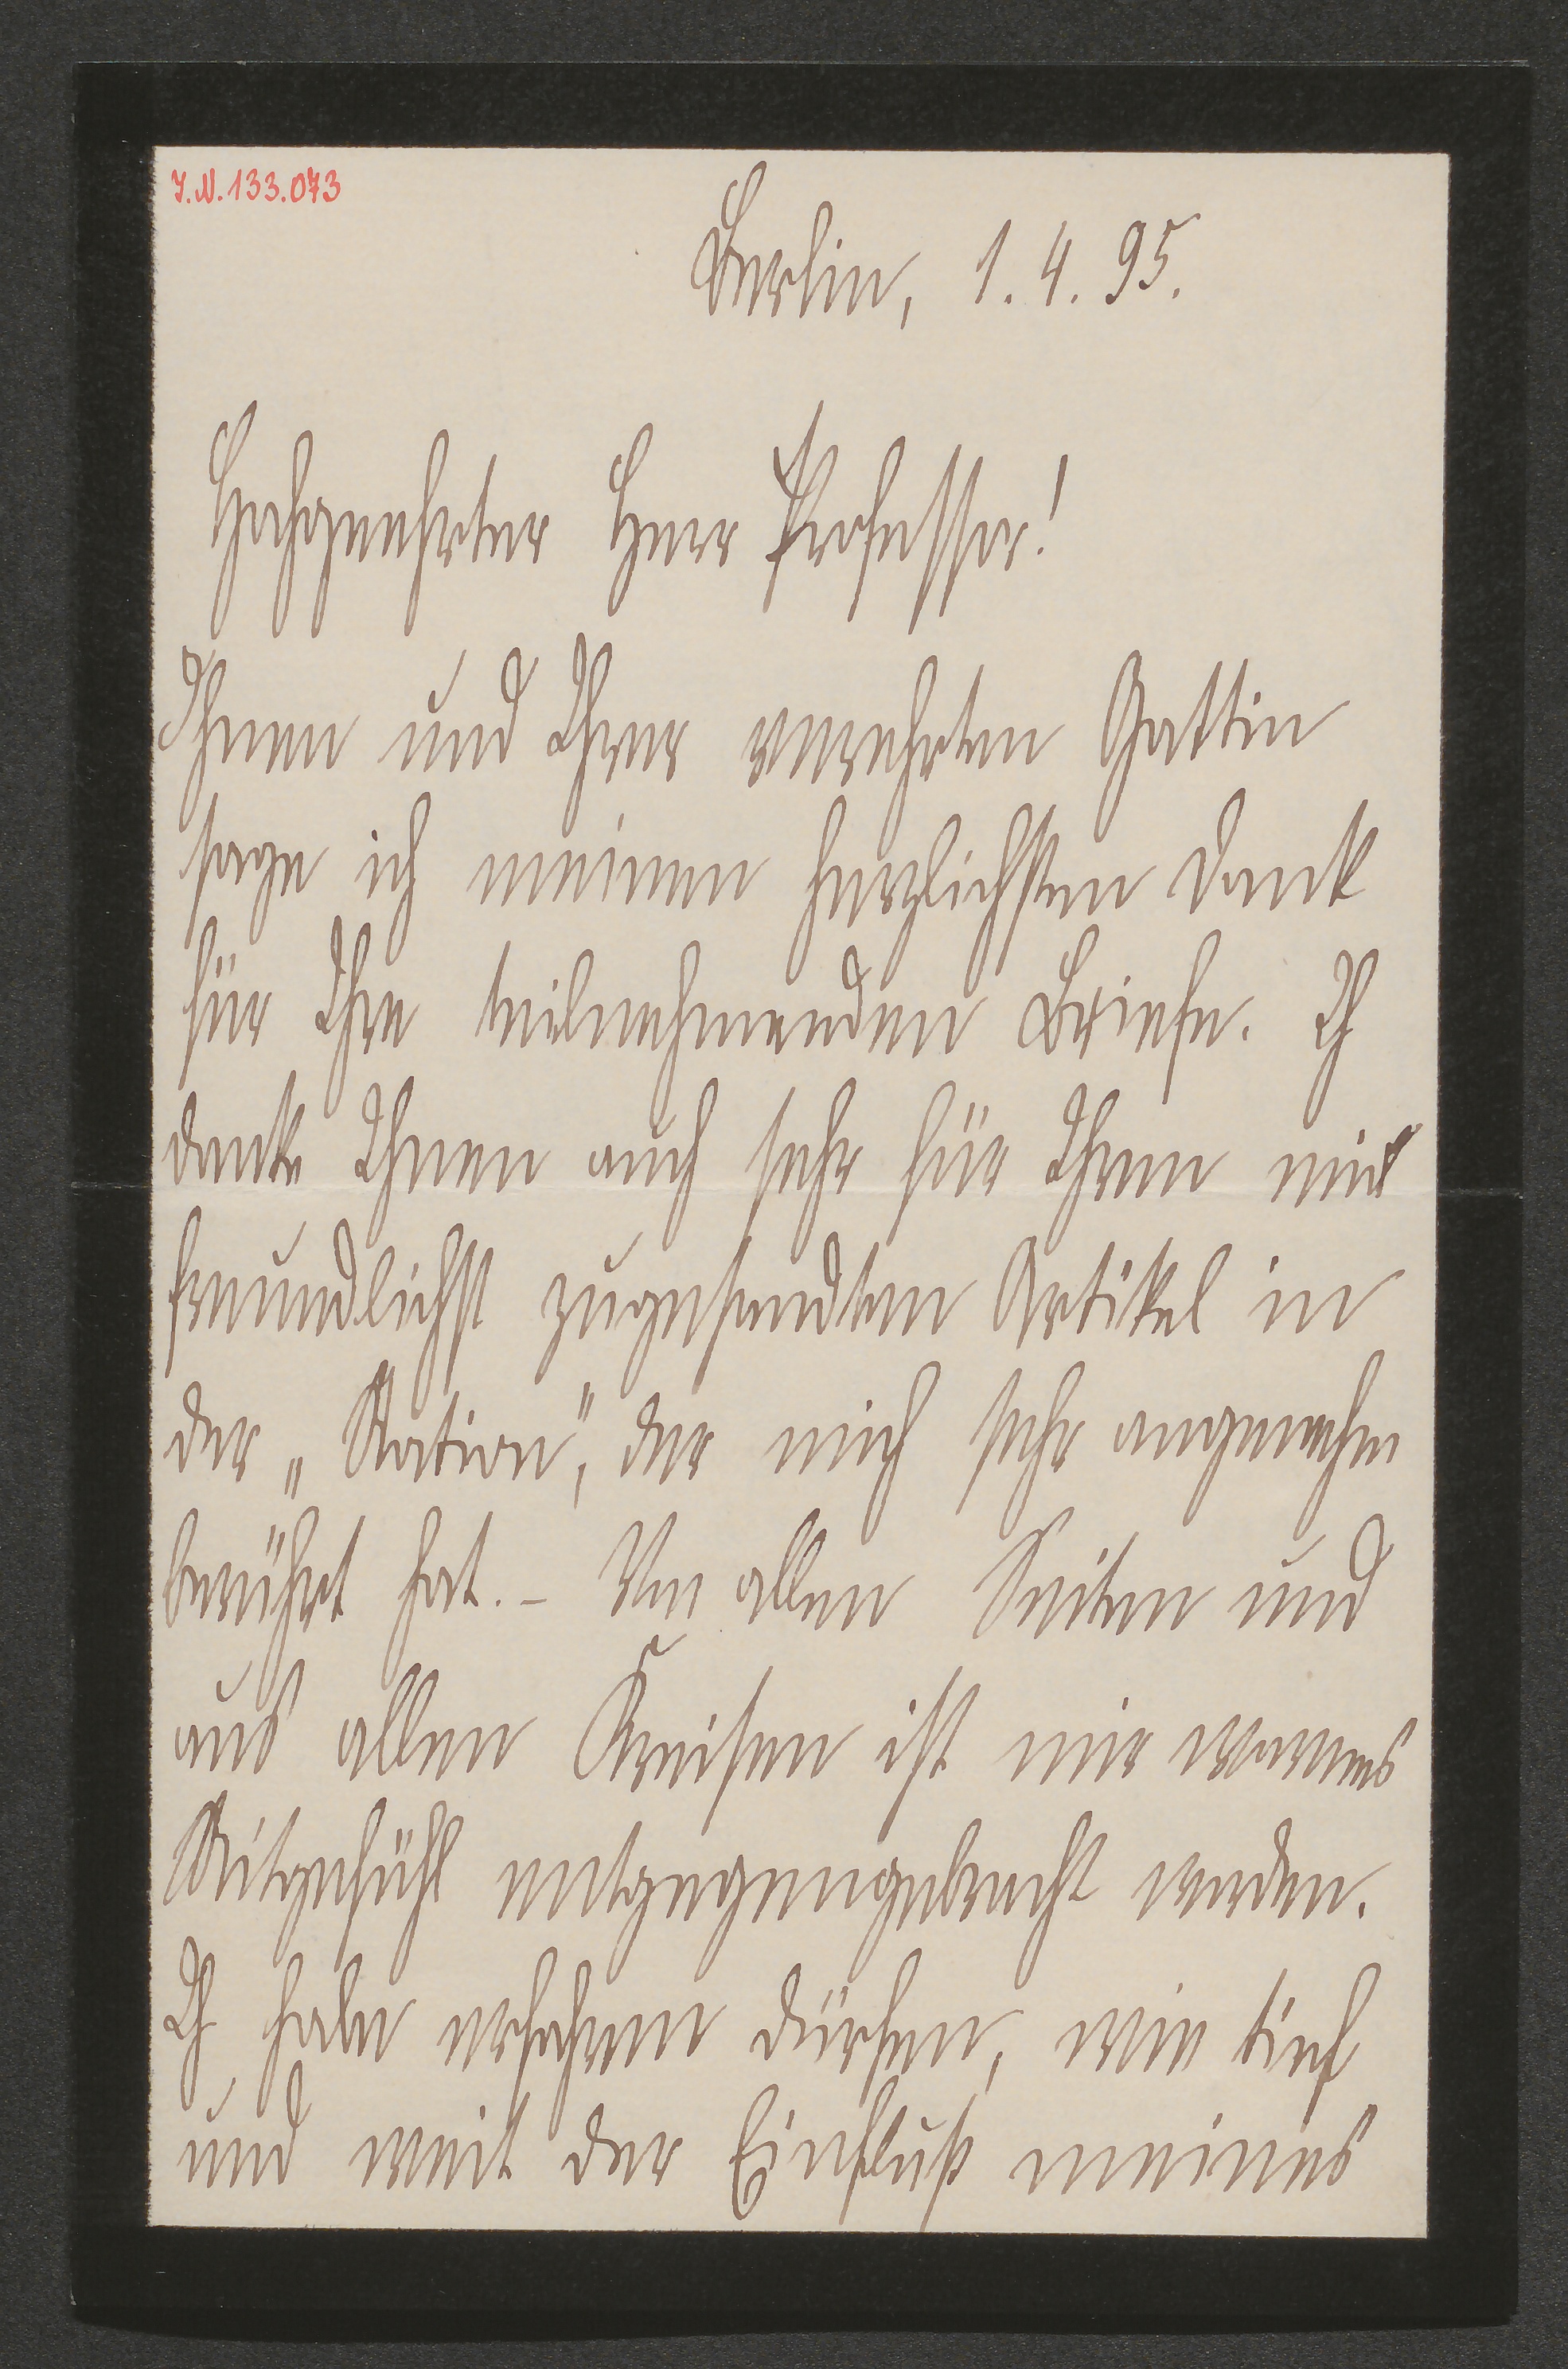 J.N. 133.073
Berlin, 1. 4. 95.
Hochgeehrter Herr Professor!
Ihnen und Ihrer verehrten Gattin
sage ich meinen herzlichsten Dank
für Ihre teilnehmenden Briefe. Ich
danke Ihnen auch sehr für Ihren mir
freundlichst zugesandten Artikel in
der „Nation", der mich sehr angenehm
berührt hat. – Von allen Seiten und
aus allen Kreisen ist mir warmes
Mitgefühl entgegengebracht worden.
Ich habe erfahren dürfen, wie tief
und weit der Einfluß meines